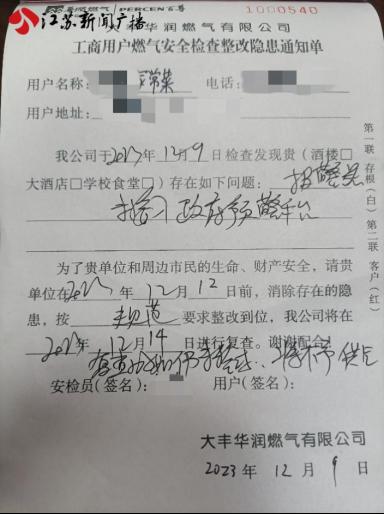 江苏新闻广播
PERCEN百尊
1000540
大丰华润燃气有限公司
工商用户燃气安全检查整改隐患通知单
用户名称: 菜
电话:
用户地址:
我公司于2023年12月9日检查发现贵(酒楼□
大酒店□学校食堂□)存在如下问题: 报警器
接入政府预警平台
为了贵单位和周边市民的生命、财产安全,请贵
单位在2023年12月12日前,消除存在的隐
患,按 规范 要求整改到位,我公司将在
2023年12月14日进行复查。谢谢配合!
复查 不予供气
安检员(签名): 用户(签名):
大丰华润燃气有限公司
2023年12月9日
第一联 存根(白) 第二联 客户(红)